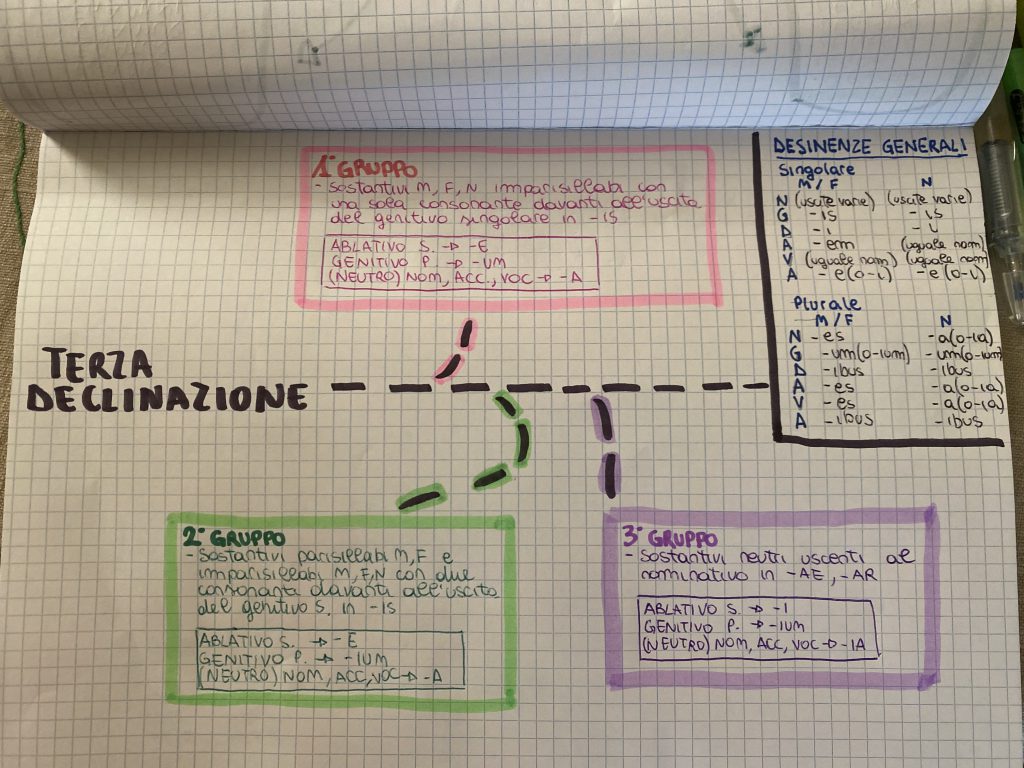 1° GRUPPO
- Sostantivi M, F, N imparisillabi con
una sola consonante davanti all'uscita
del genitivo singolare in -is
ABLATIVO S. → -E
GENITIVO P. → -UM
(NEUTRO) NOM, ACC., VOC → -A
DESINENZE GENERALI
Singolare
M/F N
N (uscite varie) (uscite varie)
G -is -is
D -i -i
A -em (uguale nom)
V (uguale nom) (uguale nom)
A -e(o-i) -e(o-i)
Plurale
M/F N
N -es -a(o-ia)
G -um(o-ium) -um(o-ium)
D -ibus -ibus
A -es -a(o-ia)
V -es -a(o-ia)
A -ibus -ibus
TERZA
DECLINAZIONE
2° GRUPPO
- Sostantivi parisillabi M, F e
imparisillabi M, F, N con due
consonanti davanti all'uscita
del genitivo S. in -is
ABLATIVO S. → -E
GENITIVO P. → -IUM
(NEUTRO) NOM, ACC, VOC → -A
3° GRUPPO
- Sostantivi neutri uscenti al
nominativo in -AE, -AR
ABLATIVO S. → -I
GENITIVO P. → -IUM
(NEUTRO) NOM, ACC, VOC → -IA